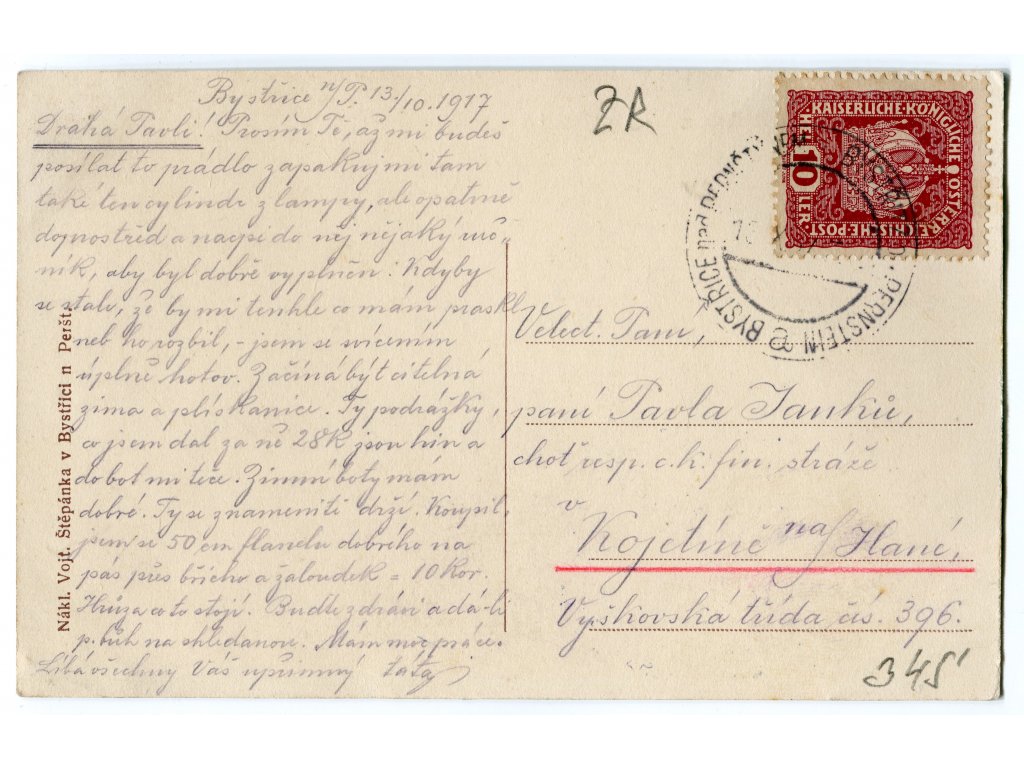 Bystřice n/P. 13./10. 1917
Drahá Pavli! Prosím Tě, až mi budeš
posílat to prádlo zapakuj mi tam
také ten cylindr z lampy, ale opatrně
doprostřed a nacpi do něj nějaký ruč-
ník, aby byl dobře vyplněn. Kdyby
se stalo, že by mi tenhle co mám praskl
neb ho rozbil, - jsem se svícením
úplně hotov. Začíná být citelná
zima a plískanice. Ty podrážky,
co jsem dal za ně 28K jsou hin a
do bot mi teče. Zimní boty mám
dobré. Ty se znamenitě drží. Koupil
jsem si 50 cm flanelu dobrého na
pás přes břicho a žaloudek = 10 Kor.
Hrůza co to stojí. Buďte zdrávi a dá-li
p. bůh na shledanou. Mám moc práce.
Líbá všechny Váš upřímný táta
Nákl. Vojt. Štěpánka v Bystřici n Peršt.
ZR
KAISERLICHE KÖNIGLICHE ÖSTERREICHISCHE POST
HELLER
10
BYSTŘICE nad PERNŠTÝNEM
PERNSTEIN
Velect. Paní,
paní Pavla Janků,
choť resp. c.k. fin. stráže
v
Kojetíně na/Hané,
Vyškovská třída čís. 396.
345